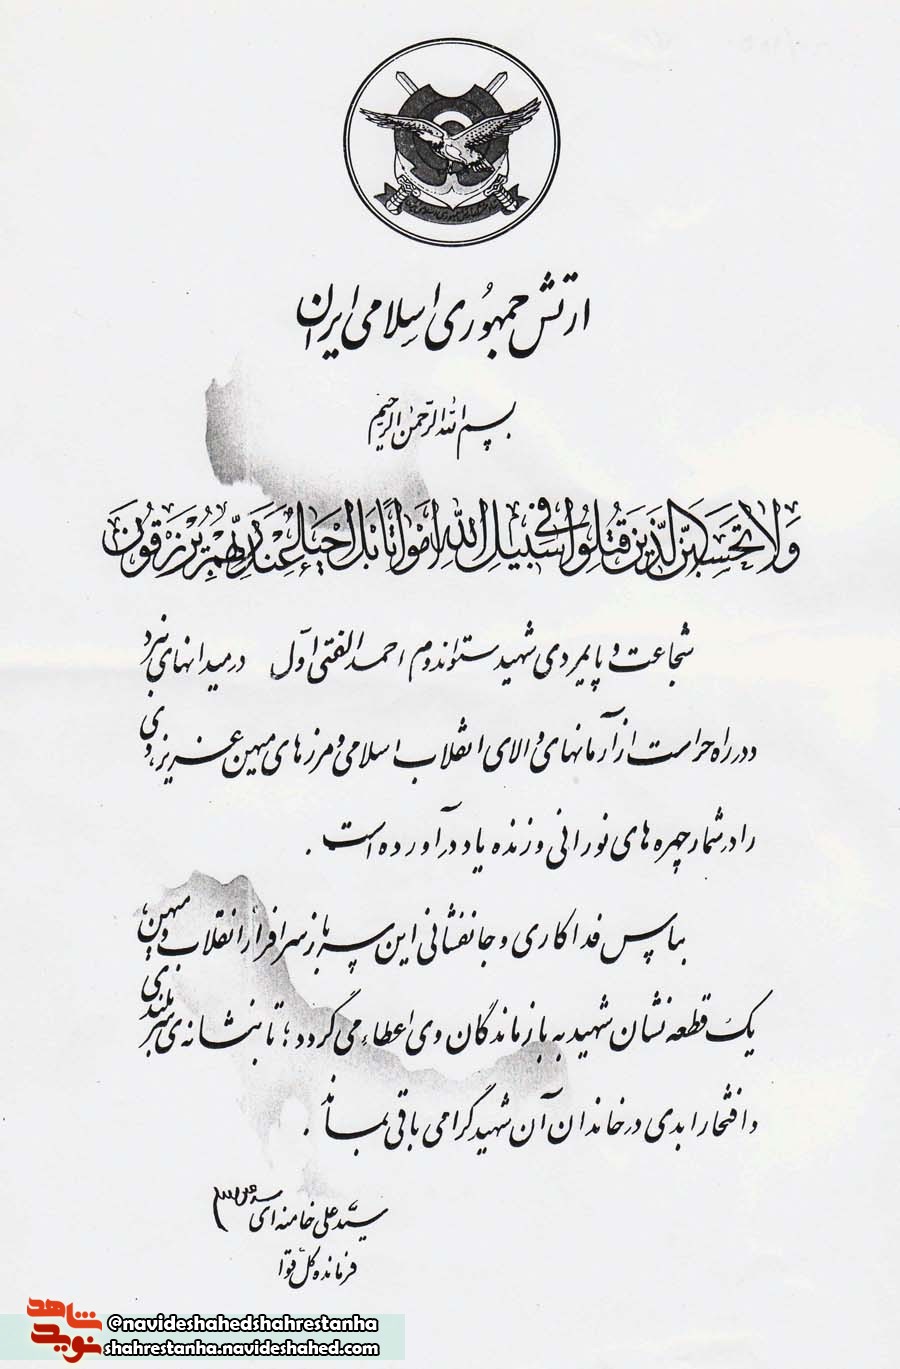 ارتش جمهوری اسلامی ایران
بسم الله الرحمن الرحیم
وَلا تَحسَبَنَّ الَّذينَ قُتِلُوا في سَبيلِ اللهِ اَمْواتاً بَل اَحياءٌ عِندَ رَبِّهِم يُرزَقُونَ
شجاعت و پایمردی شهید ستواندوم احمد الفتی اول در میدانهای نبرد
و در راه حراست از آرمانهای والای انقلاب اسلامی و مرزهای میهن عزیز، وی
را در شمار چهره های نورانی و زنده یاد در آورده است .
بپاس فداکاری و جانفشانی این سرباز سرافراز انقلاب و میهن،
یک قطعه نشان شهید به بازماندگان وی اعطاء می گردد؛ تا بنشانه ی سربلندی
و افتخار ابدی در خاندان آن شهید گرامی باقی بماند .
سیّد علی خامنه ای
فرمانده کل قوا
نوید شاهد
@navideshahedshahrestanha
shahrestanha.navideshahed.com